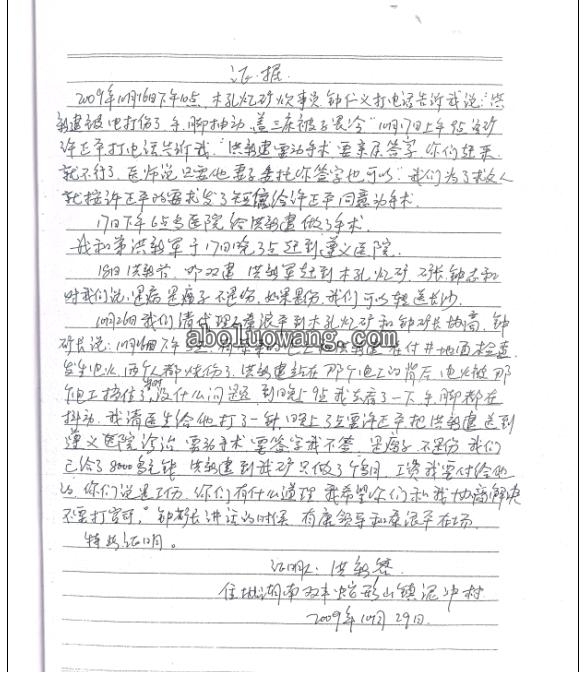 证据
2009年10月16日下午10点,木孔煤矿炊事员钟仁义打电话告诉我说:"洪
新建被电打伤了,手、脚抽动,盖三床被子畏冷"10月17日上午9点
许正平打电话告诉我,"洪新建要动手术,要亲属签字,你们赶来
就不行了,医师说只要他妻子委托你签字也可以"我们为了救人
就按许正平的要求发了短信给许正平同意为手术。
17日下午6点 医院给洪新建做了手术。
我和弟洪新军于17日晚 点赶到遵义医院。
18日洪新 双建、洪新军赶到木孔煤矿,矿长钟志和
对我们说,是病是疯子不是伤,如果是伤,我们可以转送长沙。
10月26日我们请代理 浪平到木孔煤矿和钟矿长协商,钟
矿长说:10月16日下午 点, 井地面检查
发生电火,两个人都烧伤了,洪新建站在那个电工的背后,电火被那
个电工挡住了,没什么问题,到晚上9点我去看了一下,手脚都在
抖动,我请医生给他打了一针,晚上 点要许正平把洪新建送到
遵义医院诊治,要动手术要签字我不签,是疯子,不是伤,我们
已给了8000多元钱,洪新建到我矿只做了 个月,工资我要付给他
的,你们说是工伤,你们有什么道理,我希望你们和我协商解决
不要打官司,"钟矿长讲话的时候,有 领导和 浪平在场
特此证明。
证明人:洪新
住址湖南双丰 形山镇泥冲村
2009年10月29日
www.aboluowang.com